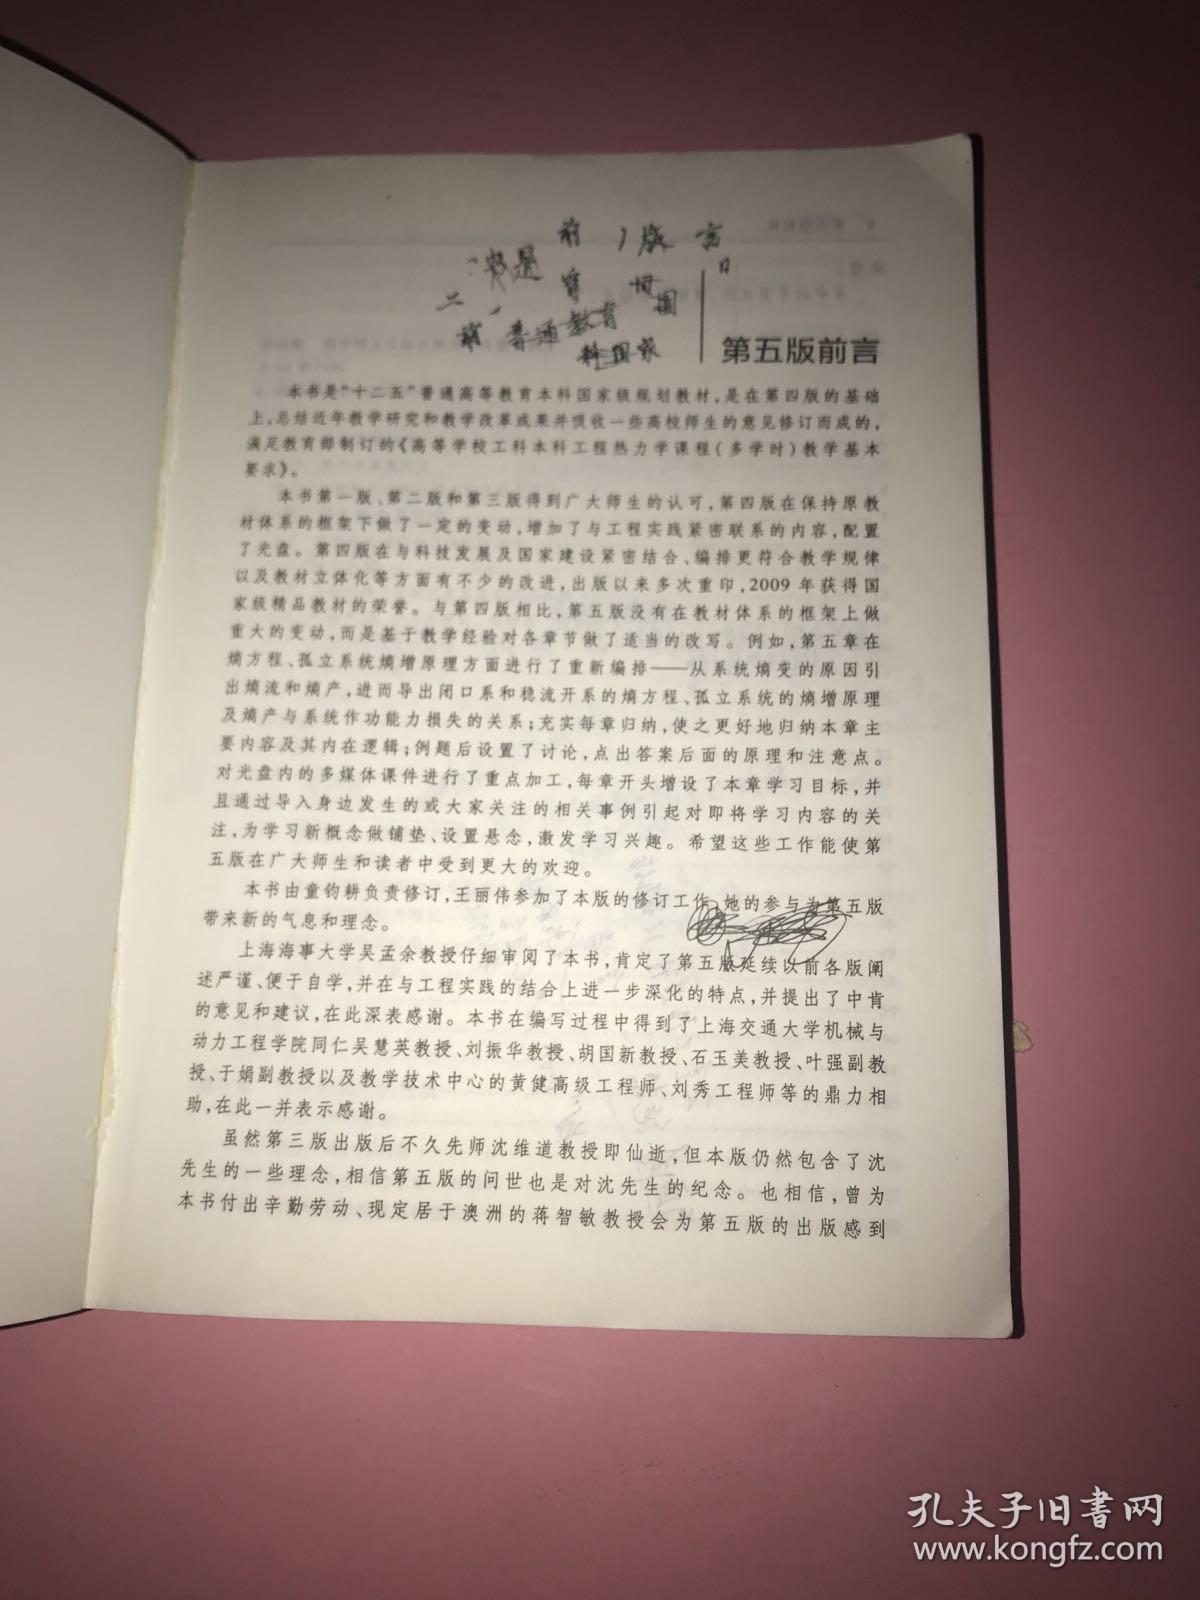 前 版 言
是
二、
前 普通教育 国
科国家
第五版前言
本书是“十二五”普通高等教育本科国家级规划教材，是在第四版的基础
上，总结近年教学研究和教学改革成果并吸收一些高校师生的意见修订而成的，
满足教育部制订的《高等学校工科本科工程热力学课程(多学时)教学基本
要求》。
本书第一版、第二版和第三版得到广大师生的认可，第四版在保持原教
材体系的框架下做了一定的变动，增加了与工程实践紧密联系的内容，配置
了光盘。第四版在与科技发展及国家建设紧密结合、编排更符合教学规律
以及教材立体化等方面有不少的改进，出版以来多次重印，2009年获得国
家级精品教材的荣誉。与第四版相比，第五版没有在教材体系的框架上做
重大的变动，而是基于教学经验对各章节做了适当的改写。例如，第五章在
熵方程、孤立系统熵增原理方面进行了重新编排——从系统熵变的原因引
出熵流和熵产，进而导出闭口系和稳流开系的熵方程、孤立系统的熵增原理
及熵产与系统作功能力损失的关系；充实每章归纳，使之更好地归纳本章主
要内容及其内在逻辑；例题后设置了讨论，点出答案后面的原理和注意点。
对光盘内的多媒体课件进行了重点加工，每章开头增设了本章学习目标，并
且通过导入身边发生的或大家关注的相关事例引起对即将学习内容的关
注，为学习新概念做铺垫、设置悬念，激发学习兴趣。希望这些工作能使第
五版在广大师生和读者中受到更大的欢迎。
本书由童钧耕负责修订，王丽伟参加了本版的修订工作，她的参与为第五版
带来新的气息和理念。
上海海事大学吴孟余教授仔细审阅了本书，肯定了第五版延续以前各版阐
述严谨、便于自学，并在与工程实践的结合上进一步深化的特点，并提出了中肯
的意见和建议，在此深表感谢。本书在编写过程中得到了上海交通大学机械与
动力工程学院同仁吴慧英教授、刘振华教授、胡国新教授、石玉美教授、叶强副教
授、于娟副教授以及教学技术中心的黄健高级工程师、刘秀工程师等的鼎力相
助，在此一并表示感谢。
虽然第三版出版后不久先师沈维道教授即仙逝，但本版仍然包含了沈
先生的一些理念，相信第五版的问世也是对沈先生的纪念。也相信，曾为
本书付出辛勤劳动、现定居于澳洲的蒋智敏教授会为第五版的出版感到
孔夫子旧书网
www.kongfz.com